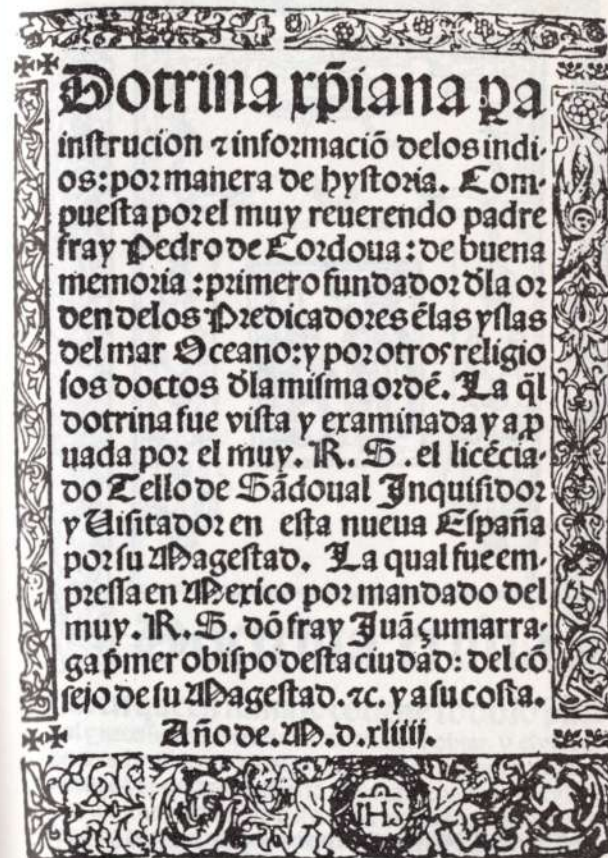 Dotrina xp̄iana p̱a
instrucion ⁊ informaciō delos indi-
os: por manera de hystoria. Com-
puesta por el muy reuerendo padre
fray Pedro de Cordoua: de buena
memoria: primero fundador d̄la or
den delos Predicadores ēlas yslas
del mar Oceano: y por otros religio
sos doctos d̄la misma ordē. La q̄l
dotrina fue vista y examinada y ap̱
uada por el muy. R. S. el licēcia-
do Tello de Sādoual Inquisidor
y Uisitador en esta nueua España
por su Magestad. La qual fue em-
pressa en Mexico por mandado del
muy. R. S. dō fray Juā çumarra-
ga p̄mer obispo desta ciudad: del cō
sejo de su Magestad. ⁊c. y a su costa.
Año de. M. d. xliiij.
IHS